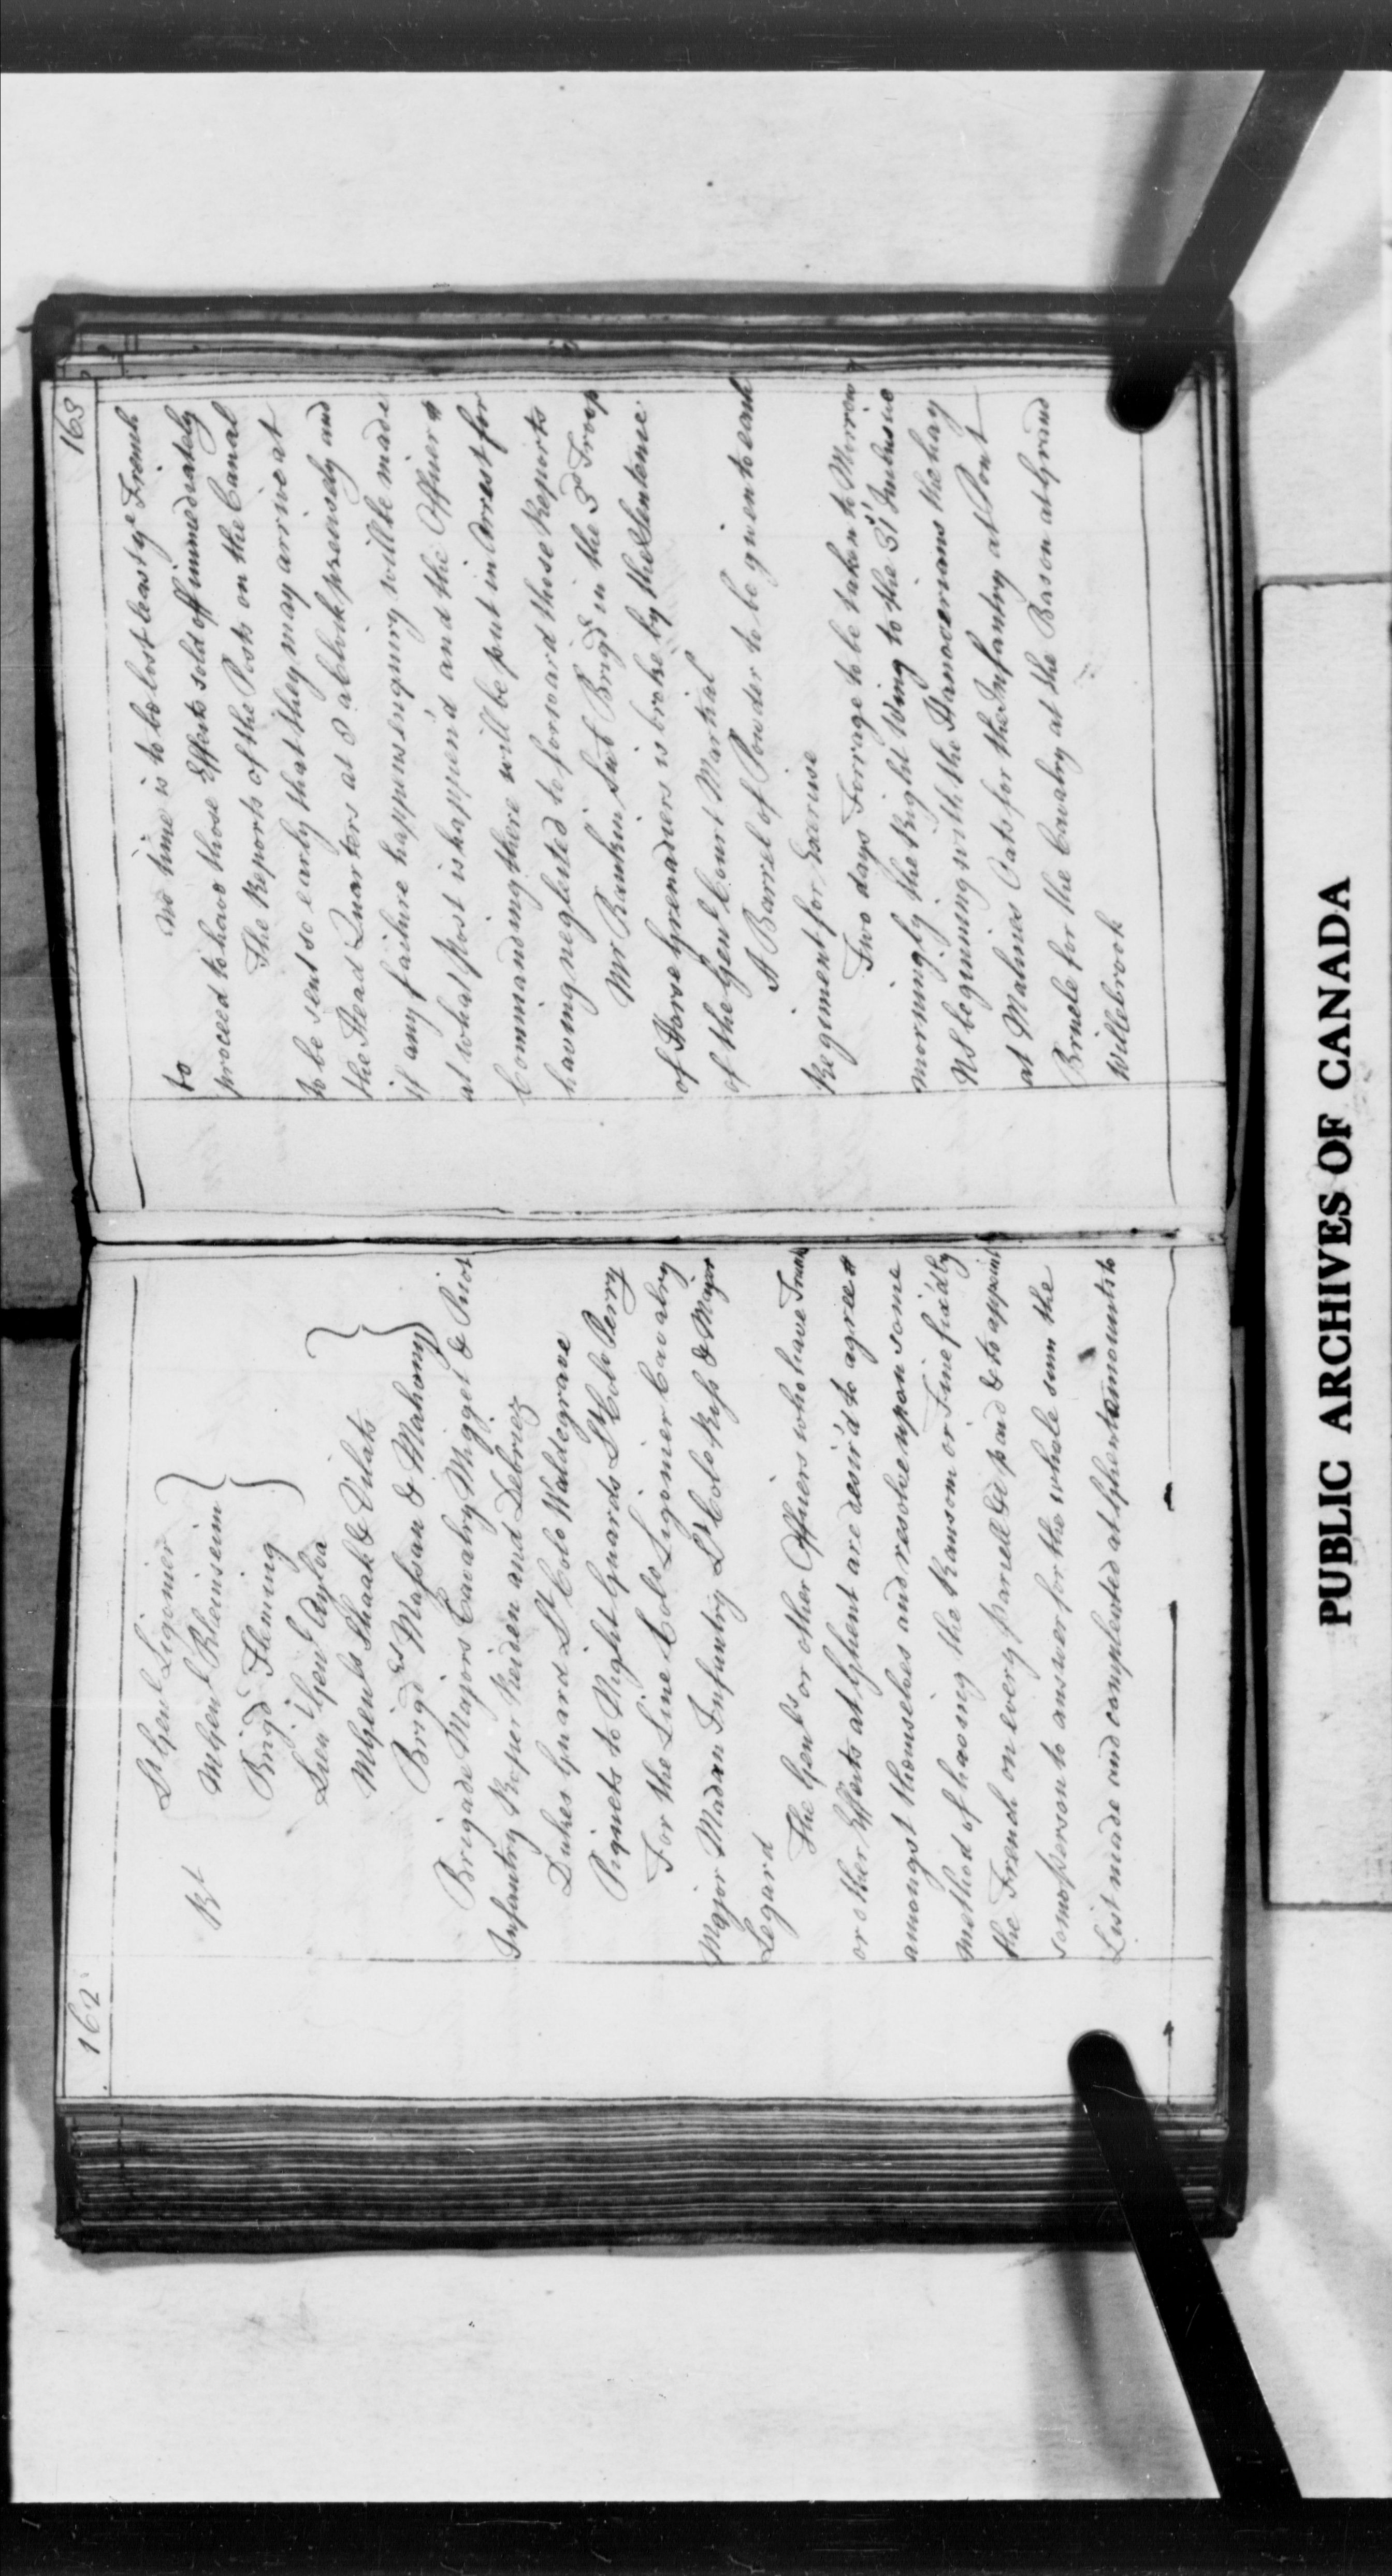 162
Lt Genl Ligonier
Bt MGenl Bleinseim
Brigdr Fleming
Lieut Genl Aylva
MGenls Shaak & Vilats
Brigdrs Massau & Mahony
Brigade Majors Cavalry Migget & Pisot
Infantry Roper Reiden and Debriez
Dukes Guard Lt Colo Waldegrave
Piquets to Night Guards Lt Colo Perry
For the Line Colo Ligonier Cavalry
Major Madan Infantry Lt Colo Russ & Major
Legard
The Genls or other Officers who have Trunks
or other Effects at Ghent are desir'd to agree
amongst themselves and resolve upon some
method of having the Ransom or Fine fix'd by
the French on every parcell paid & to appoint
some person to answer for the whole sum the
List made and compleated at Ghent amounts to
163
no time is to be lost least ye French
to
proceed to have those Effects sold off immediately
The Reports of the Posts on the Canal
to be sent so early that they may arrive at
the Head Quarters at 8 aClock presisely and
if any failure happens enquiry will be made
at what post is happen'd and the Officer
Commanding there will be put in Arrest for
having neglected to forward these Reports
Mr Rankin Sub Brigdr in the 3d Troop
of Horse Grenadiers is broke by the Sentence
of the Genl Court Martial
A Barrel of Powder to be given to each
Regiment for Exercise
Two days Forrage to be taken to Morrow
morning by the Right Wing to the 31st Inclusive
NS beginning with the Hanoverians the hay
at Malines Oats for the Infantry at Pont
Brulé for the Cavalry at the Bason at Grand
Willebrook
PUBLIC ARCHIVES OF CANADA